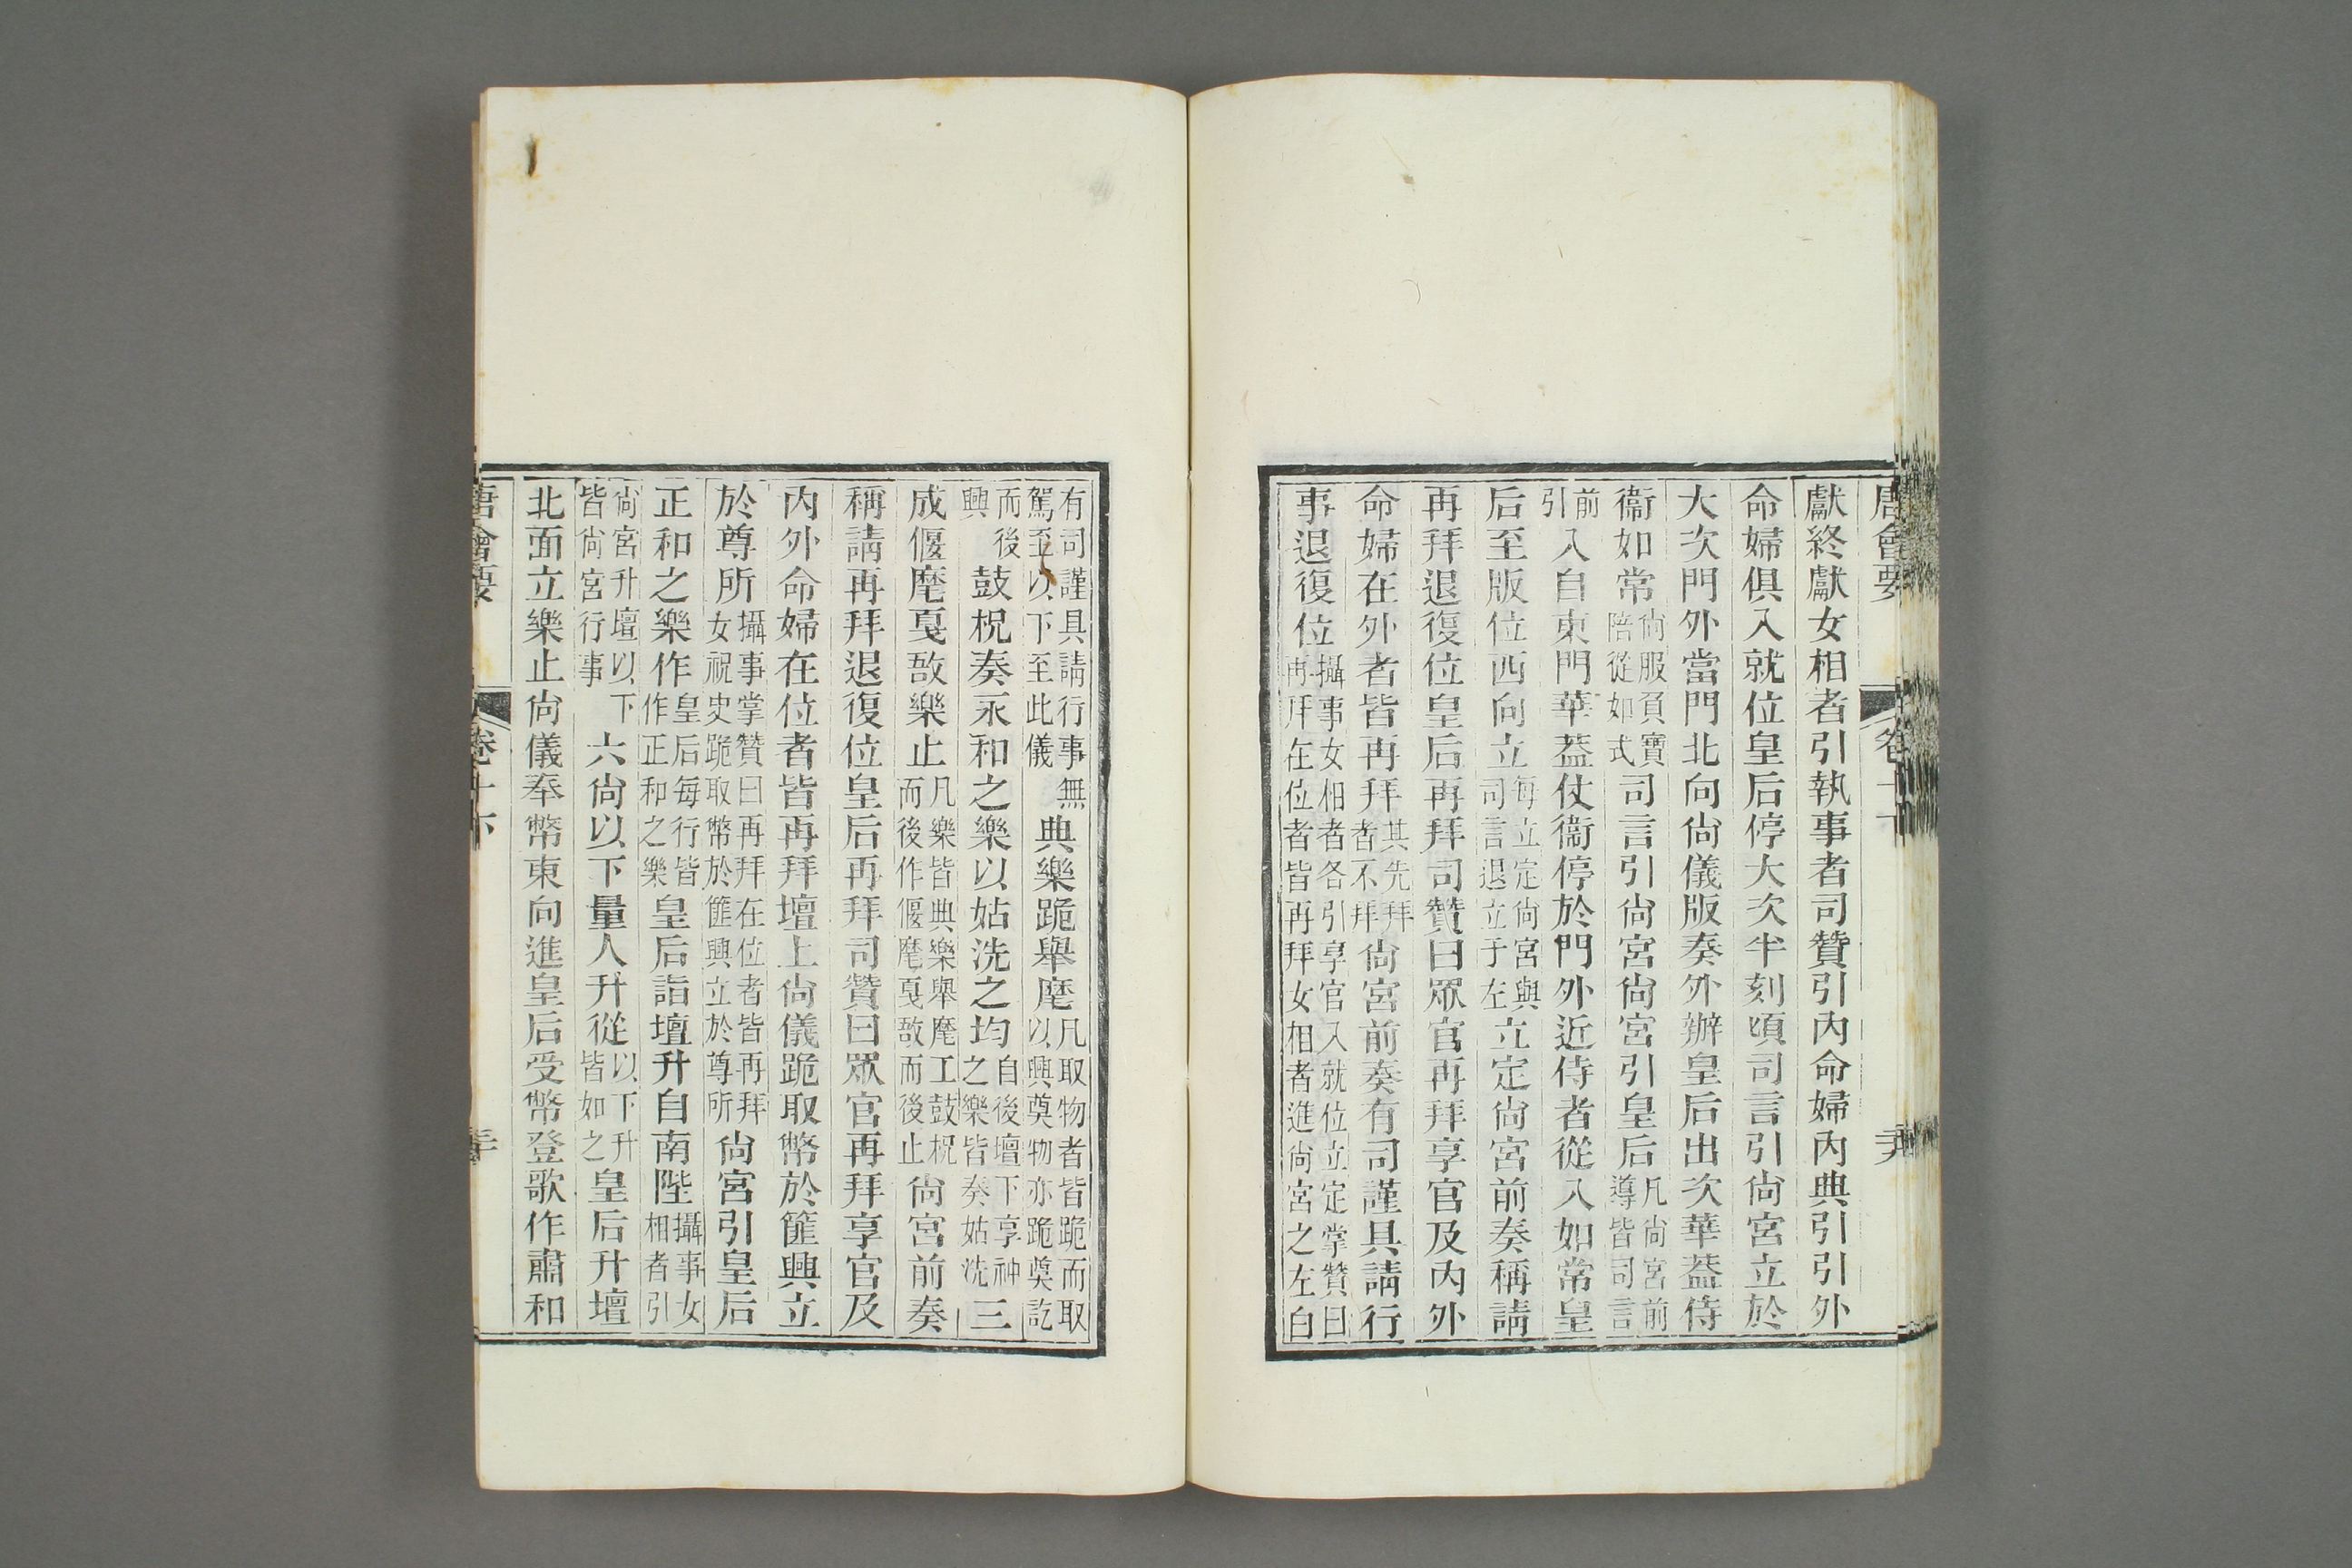 唐會要 卷十下
獻終獻女相者引執事者司贊引內命婦內典引引外
命婦俱入就位皇后停大次半刻頃司言引尙宮立於
大次門外當門北向尙儀版奏外辦皇后出次華蓋侍
衞如常尙服負寶陪從如式司言引尙宮尙宮引皇后凡尙宮前導皆司言
前引入自東門華蓋仗衞停於門外近侍者從入如常皇
后至版位西向立每立定尙宮與司言退立于左立定尙宮前奏稱請
再拜退復位皇后再拜司贊曰眾官再拜享官及內外
命婦在外者皆再拜其先拜者不拜尙宮前奏有司謹具請行
事退復位攝事女相者各引享官入就位立定掌贊曰再拜在位者皆再拜女相者進尙宮之左白
有司謹具請行事無駕至以下至此儀典樂跪舉麾凡取物者皆跪而取以興奠物亦跪奠訖
而後興鼓柷奏永和之樂以姑洗之均自後壇下享神之樂皆奏姑洗三
成偃麾戛敔樂止凡樂皆典樂舉麾工鼓柷而後作偃麾戛敔而後止尙宮前奏
稱請再拜退復位皇后再拜司贊曰眾官再拜享官及
內外命婦在位者皆再拜壇上尙儀跪取幣於篚興立
於尊所攝事掌贊曰再拜在位者皆再拜女祝史跪取幣於篚興立於尊所尙宮引皇后
正和之樂作皇后每行皆作正和之樂皇后詣壇升自南陛攝事女相者引
尙宮升壇以下皆尙宮行事六尙以下量人升從以下升皆如之皇后升壇
北面立樂止尙儀奉幣東向進皇后受幣登歌作肅和
唐會要 卷十下 三十